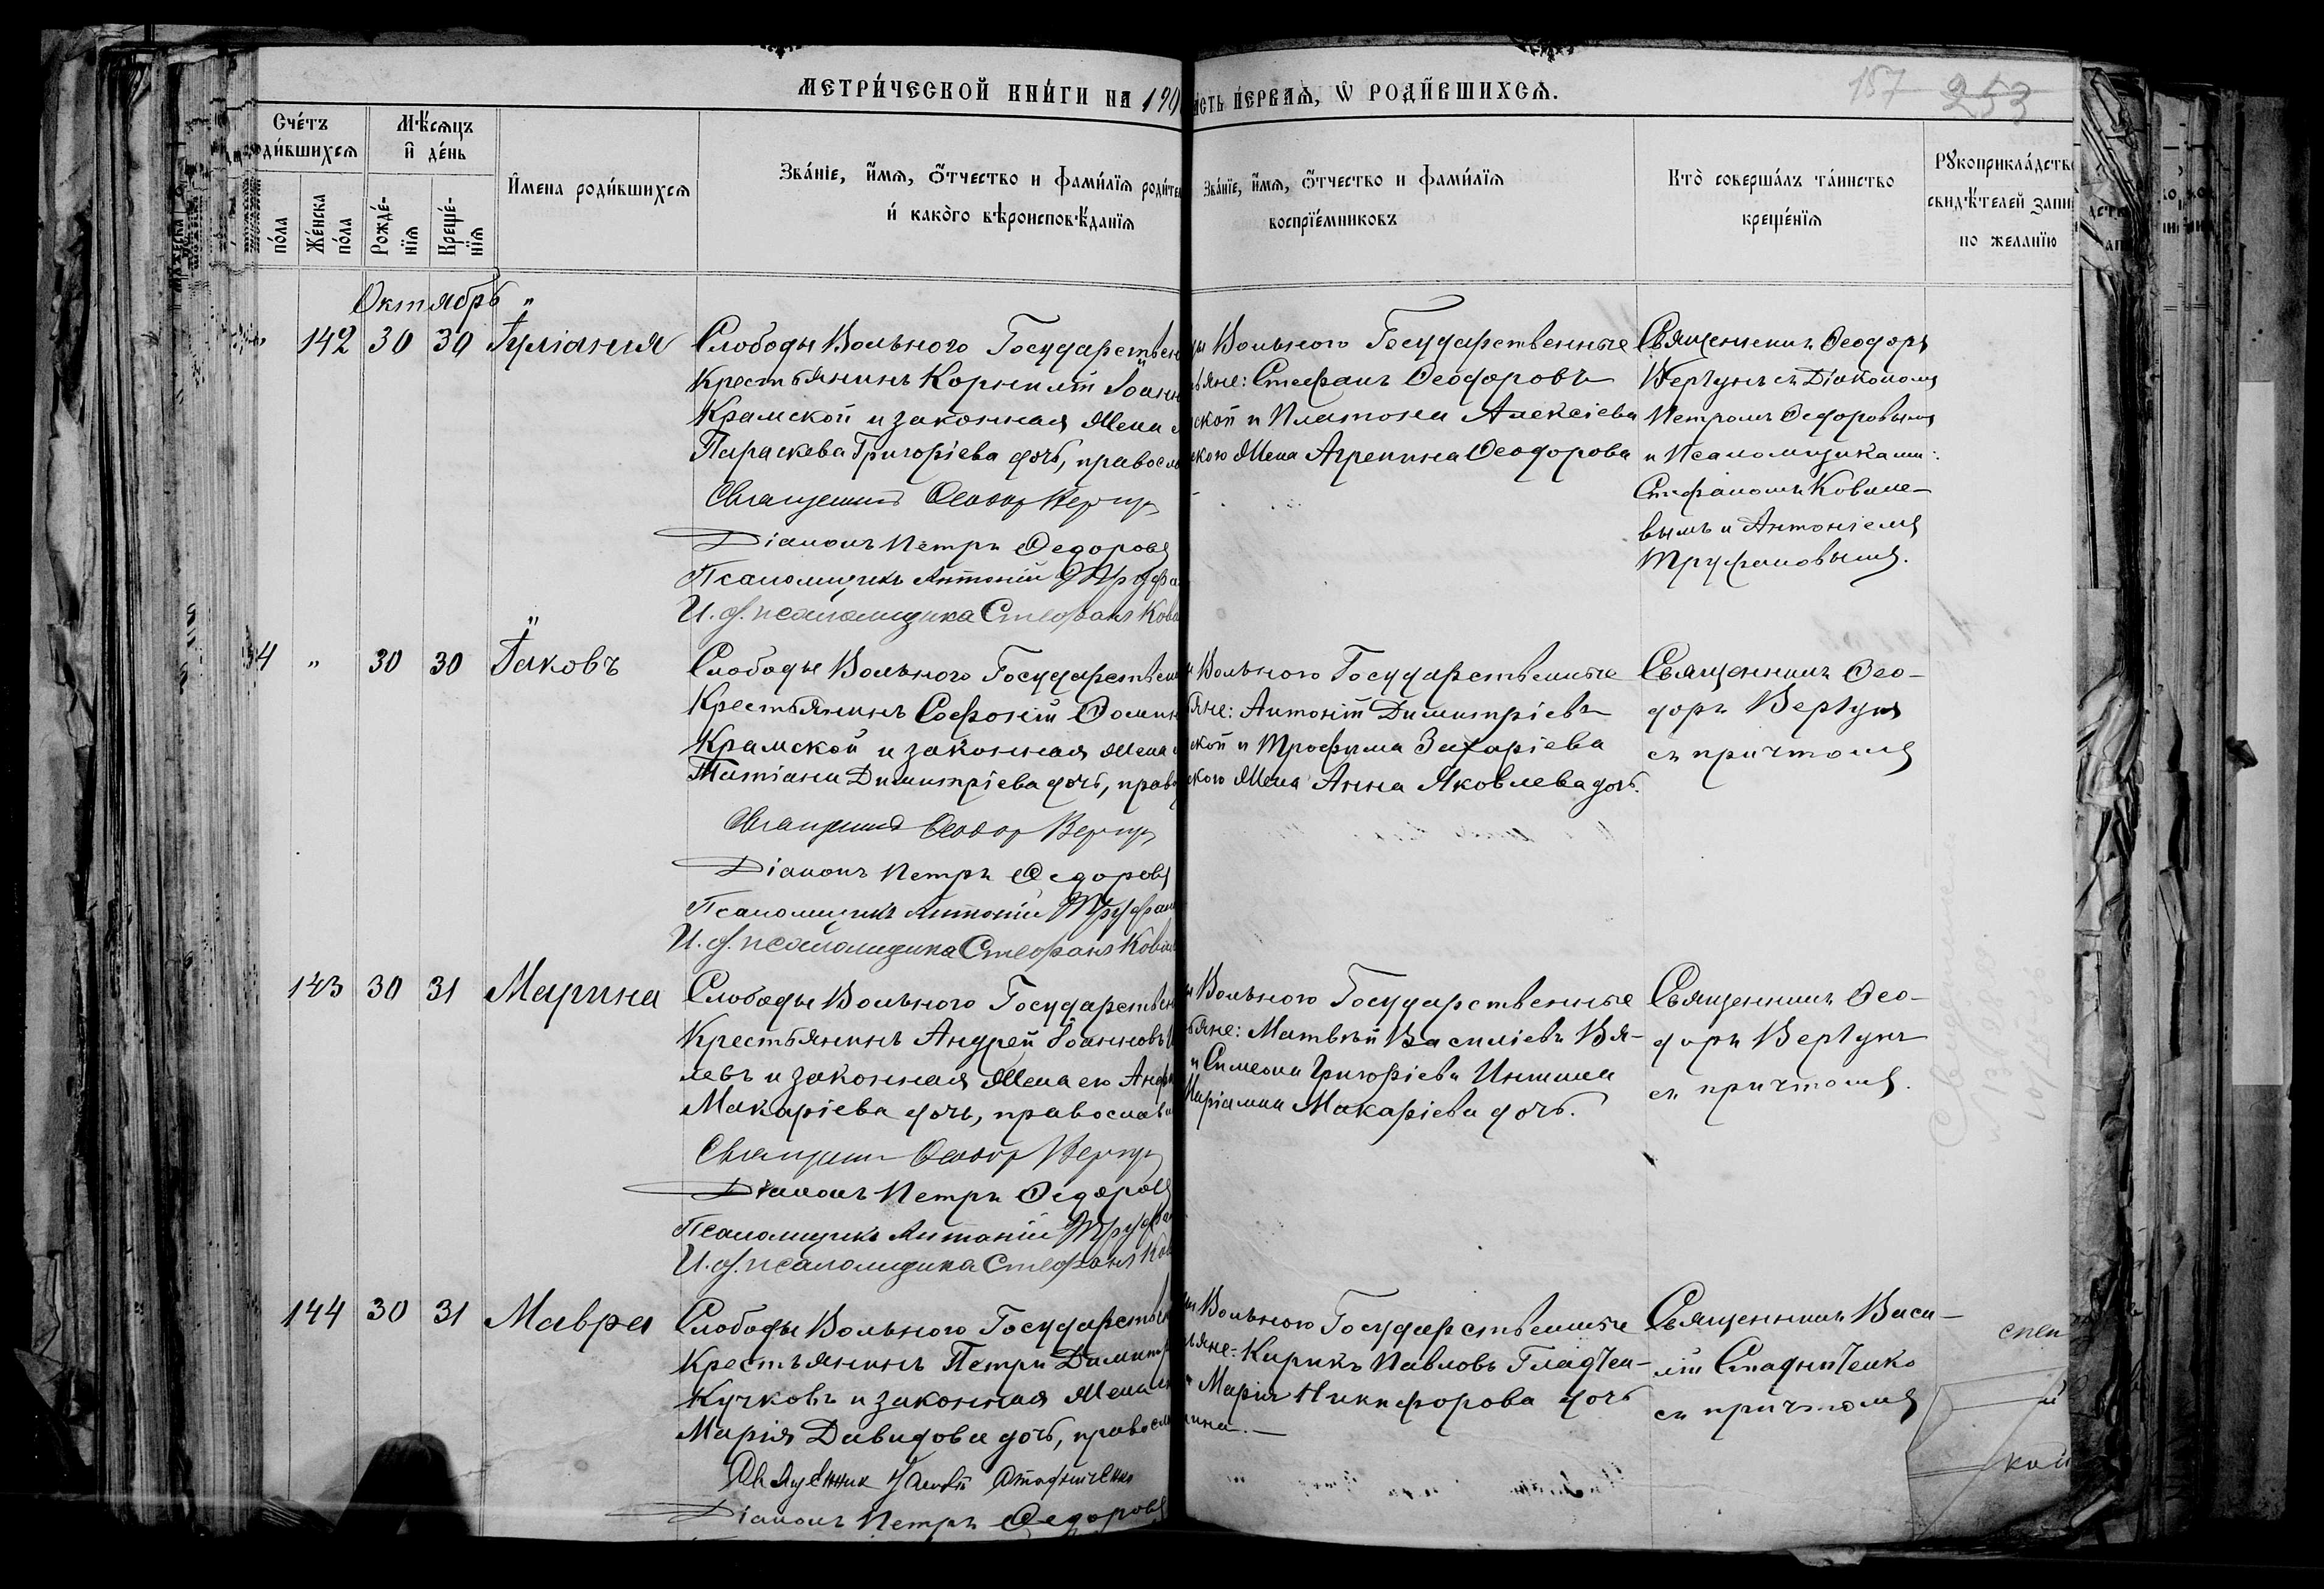 МЕТРИ́ЧЕСКОЙ КНИ́ГИ НА 190
А́СТЬ ПЕ́РВАЯ, Ѡ РОДИ́ВШИХСЯ.
157 253
Сче́тъ
роди́вшихся
Мѣ́сяцъ
и҆ де́нь
И҆мена роди́вшихся
Зва́нїе, и҆́мя, о҆́тчество и фами́лїя роди́те
и҆ како́го вѣроисповѣ́данїя
Зва́нїе, и҆́мя, о҆́тчество и фами́лїя
воспрїе́мниковъ
Кто̀ соверша́лъ та́инство
креще́нїя
Рꙋкоприкла́дств
свидѣ́телей запи
по желанїю
по́ла
Же́нска
по́ла
Рожде́-
нїя
Креще́-
нїя
Октябрь
142 30 30 Іуліанія
Слободы Вольного Государствен
Крестьянинъ Корнилій Іоанн
Крамской и законная жена
Параскева Григоріева дочь, правосл
Священникъ Ѳеодор Вергун
Діаконъ Петръ Ѳедоровъ
Псаломщикъ Антоній Труфа
И. д. псаломщика Стефанъ Кова
Вольного Государственные
ьяне: Стефанъ Ѳеодоровъ
ской и Платона Алексіева
ского жена Агрепина Ѳеодорова
Священникъ Ѳеодоръ
Вергунъ съ Діакономъ
Петромъ Ѳедоровымъ
и Псаломщиками:
Стефаномъ Ковале-
вымъ и Антоніемъ
Труфановымъ.
34 " 30 30 Іаковъ
Слободы Вольного Государствен
Крестьянинъ Софоній Ѳомин
Крамской и законная жена
Татіана Димитріева дочь, право
Священникъ Ѳеодор Вергун
Діаконъ Петръ Ѳедоровъ
Псаломщикъ Антоній Труфан
И. д. псаломщика Стефанъ Ковал
Вольного Государственные
яне: Антоній Димитріевъ
ской и Трофима Захаріева
ского жена Анна Яковлева дочь.
Священникъ Ѳео-
доръ Вергунъ
съ причтомъ
143 30 31 Марина
Слободы Вольного Государствен
Крестьянинъ Андрей Іоанновъ
левъ и законная жена его
Макаріева дочь, православ
Священникъ Ѳеодор Вергун
Діаконъ Петръ Ѳедоровъ
Псаломщикъ Антоній Труфан
И. д. псаломщика Стефанъ Ков
Вольного Государственные
ьяне: Матвѣй Василіевъ Вя-
и Симеона Григоріева
Маріамна Макаріева дочь.
Священникъ Ѳео-
доръ Вергунъ
съ причтомъ.
144 30 31 Мавра
Слободы Вольного Государствен
Крестьянинъ Петръ Димитр
Кучковъ и законная жена
Марія Давидова дочь, правосл
Священник Стадниченко
Діаконъ Петръ Ѳедоровъ
Вольного Государственные
ьяне: Кирикъ Павловъ Гладчен-
Марія Никифорова дочь
Священникъ Васи-
лій Стадниченко
съ причтомъ